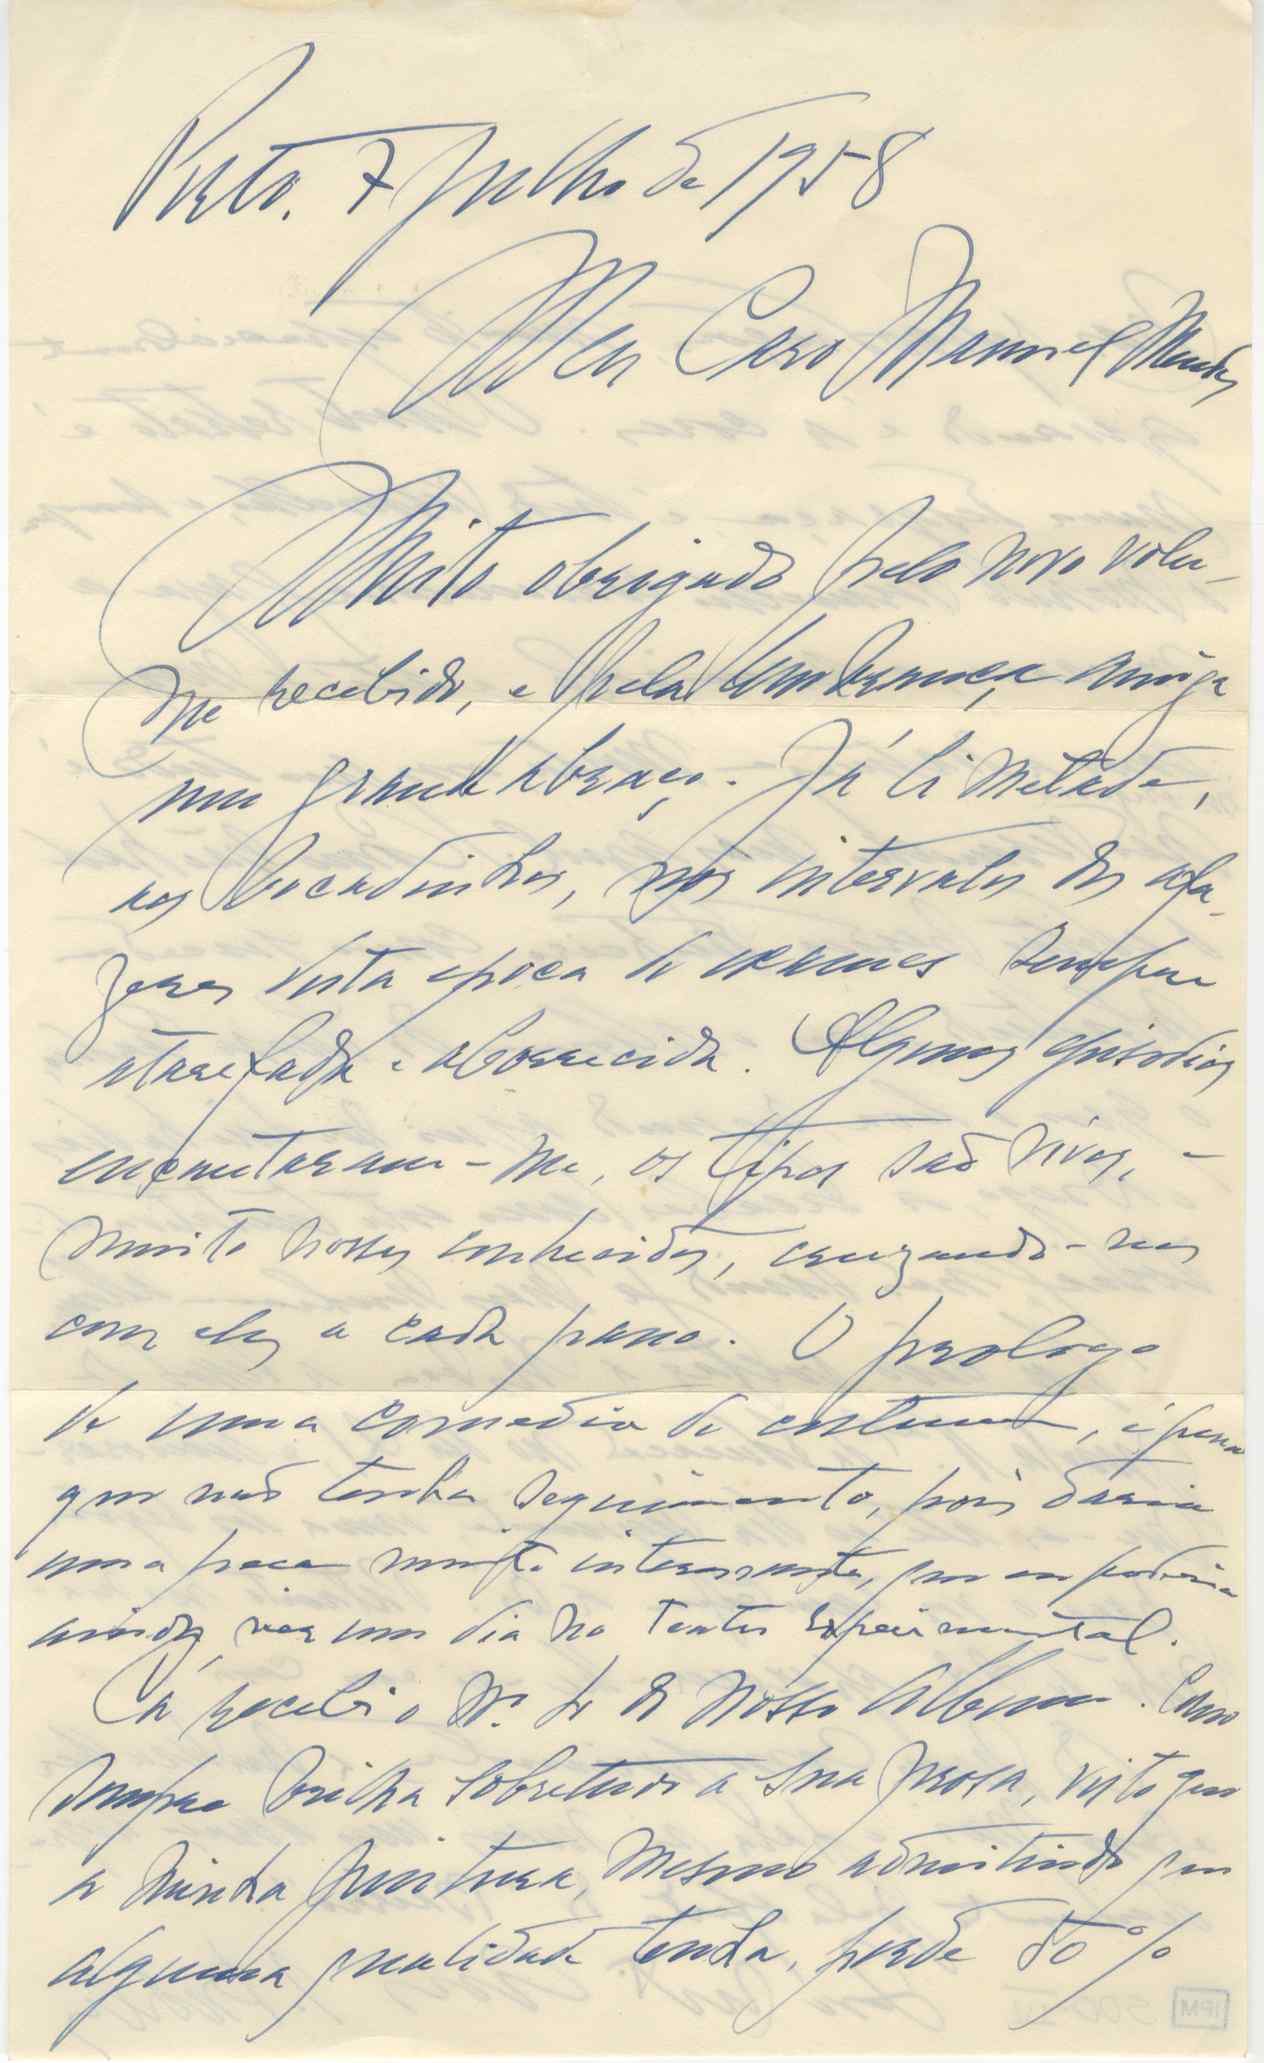 Porto. 7 Julho de 1958
Meu Caro Manuel Mendes
Muito obrigado pelo novo volu-
me recebido, e pela lembrança amiga
um grande abraço. Já li metade,
aos bocadinhos, nos intervalos dos afa-
zeres desta epoca de exames sempre
atarefada e aborrecida. Alguns episodios
encantaram-me, os tipos são vivos, e
muito nossos conhecidos, cruzando-nos
com eles a cada passo. O prologo
de uma comedia de costumes, é pena
que não tenha seguimento, pois daria
uma peça muito interessante, que eu poderia
ainda ver um dia no Teatro Experimental.
Cá recebi o Nº. do nosso Album. Como
sempre brilha sobretudo a sua prosa, visto que
a minha pintura, mesmo admitindo que
alguma qualidade tenha, perde 80%
IPM